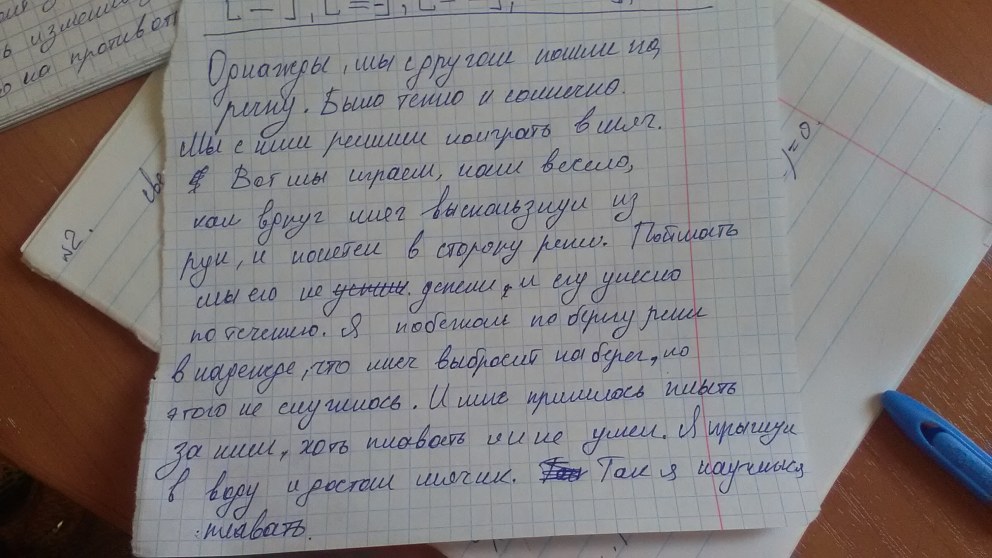 [ — ], [ = ], [
Однажды, мы с другом пошли на
речку. Было тепло и солнечно.
Мы с ним решили поиграть в мяч.
Вот мы играем, нам весело,
как вдруг мяч выскользнул из
рук, и полетел в сторону реки. Поймать
мы его не успели, и его унесло
по течению. Я побежал по берегу реки
в надежде, что мяч выбросит на берег, но
этого не случилось. И мне пришлось плыть
за ним, хоть плавать я и не умел. Я прыгнул
в воду и достал мячик. Так я научился
плавать.
№2.
)=0.
ь измени
о на против